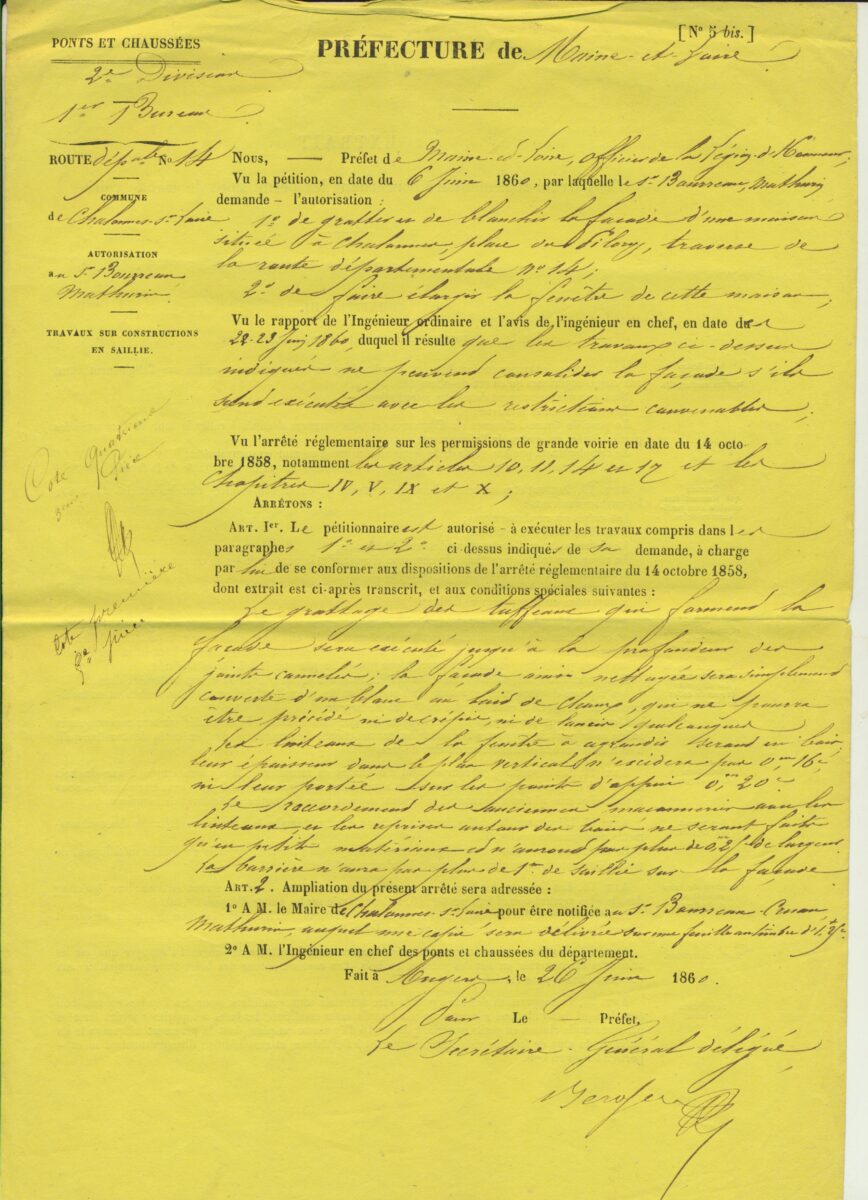 [ N° 5 bis. ]
PONTS ET CHAUSSÉES
PRÉFECTURE de Maine-et-Loire
2e Division
1er Bureau
ROUTE dépale No 14
COMMUNE
de Chalonnes-St-Loire
AUTORISATION
au Sr Bourreau
Mathurin
TRAVAUX SUR CONSTRUCTIONS
EN SAILLIE.
Cote Quatrième
3ème Pièce
Cote première
pièce
Nous, — Préfet de Maine-et-Loire, officier de la Légion d'Honneur
Vu la pétition, en date du 6 Juin 1860, par laquelle le Sr Bourreau, Mathurin
demande - l'autorisation :
1° de gratter et de blanchir la façade d'une maison
située à Chalonnes, place du Pilory, traverse de
la route départementale no 14;
2° de faire élargir la fenêtre de cette maison;
Vu le rapport de l'Ingénieur ordinaire et l'avis de l'ingénieur en chef, en date des
22-23 Juin 1860, duquel il résulte que les travaux ci-dessus
indiqués ne peuvent consolider la façade s'ils
sont exécutés avec les restrictions convenables;
Vu l'arrêté réglementaire sur les permissions de grande voirie en date du 14 octo-
bre 1858, notamment les articles 10, 11, 14 et 17 et les
Chapitres IV, V, IX et X;
ARRÊTONS :
ART. Ier. Le pétitionnaire est autorisé - à exécuter les travaux compris dans les
paragraphes 1° et 2° ci-dessus indiqués de sa demande, à charge
par lui de se conformer aux dispositions de l'arrêté réglementaire du 14 octobre 1858,
dont extrait est ci-après transcrit, et aux conditions spéciales suivantes :
Le grattage des tuffeaux qui forment la
façade sera exécuté jusqu'à la profondeur des
joints ; la façade ainsi nettoyée sera simplement
couverte d'un blanc au lait de chaux, qui ne pourra
être précédé ni de crépis, ni de lancis quelconques
Les linteaux de la fenêtre à agrandir seront en bois
leur épaisseur dans le plan vertical n'excédera pas 0m,16c,
ni leur portée sur les points d'appui 0m,20c.
Le raccordement des anciennes maçonneries avec les
linteaux et les reprises autour des baies ne seront faits
qu'en petits matériaux et n'auront pas plus de 0m,25c de largeur.
La barrière n'aura pas plus de 1m de saillie sur la façade
ART. 2. Ampliation du présent arrêté sera adressée :
1° A M. le Maire de Chalonnes-St-Loire pour être notifiée au Sr Bourreau
Mathurin, auquel une copie sera délivrée sur une feuille au timbre d'1f 25c
2° A M. l'Ingénieur en chef des ponts et chaussées du département.
Fait à Angers, le 26 Juin 1860.
Pour Le — Préfet,
Le Secrétaire-Général délégué